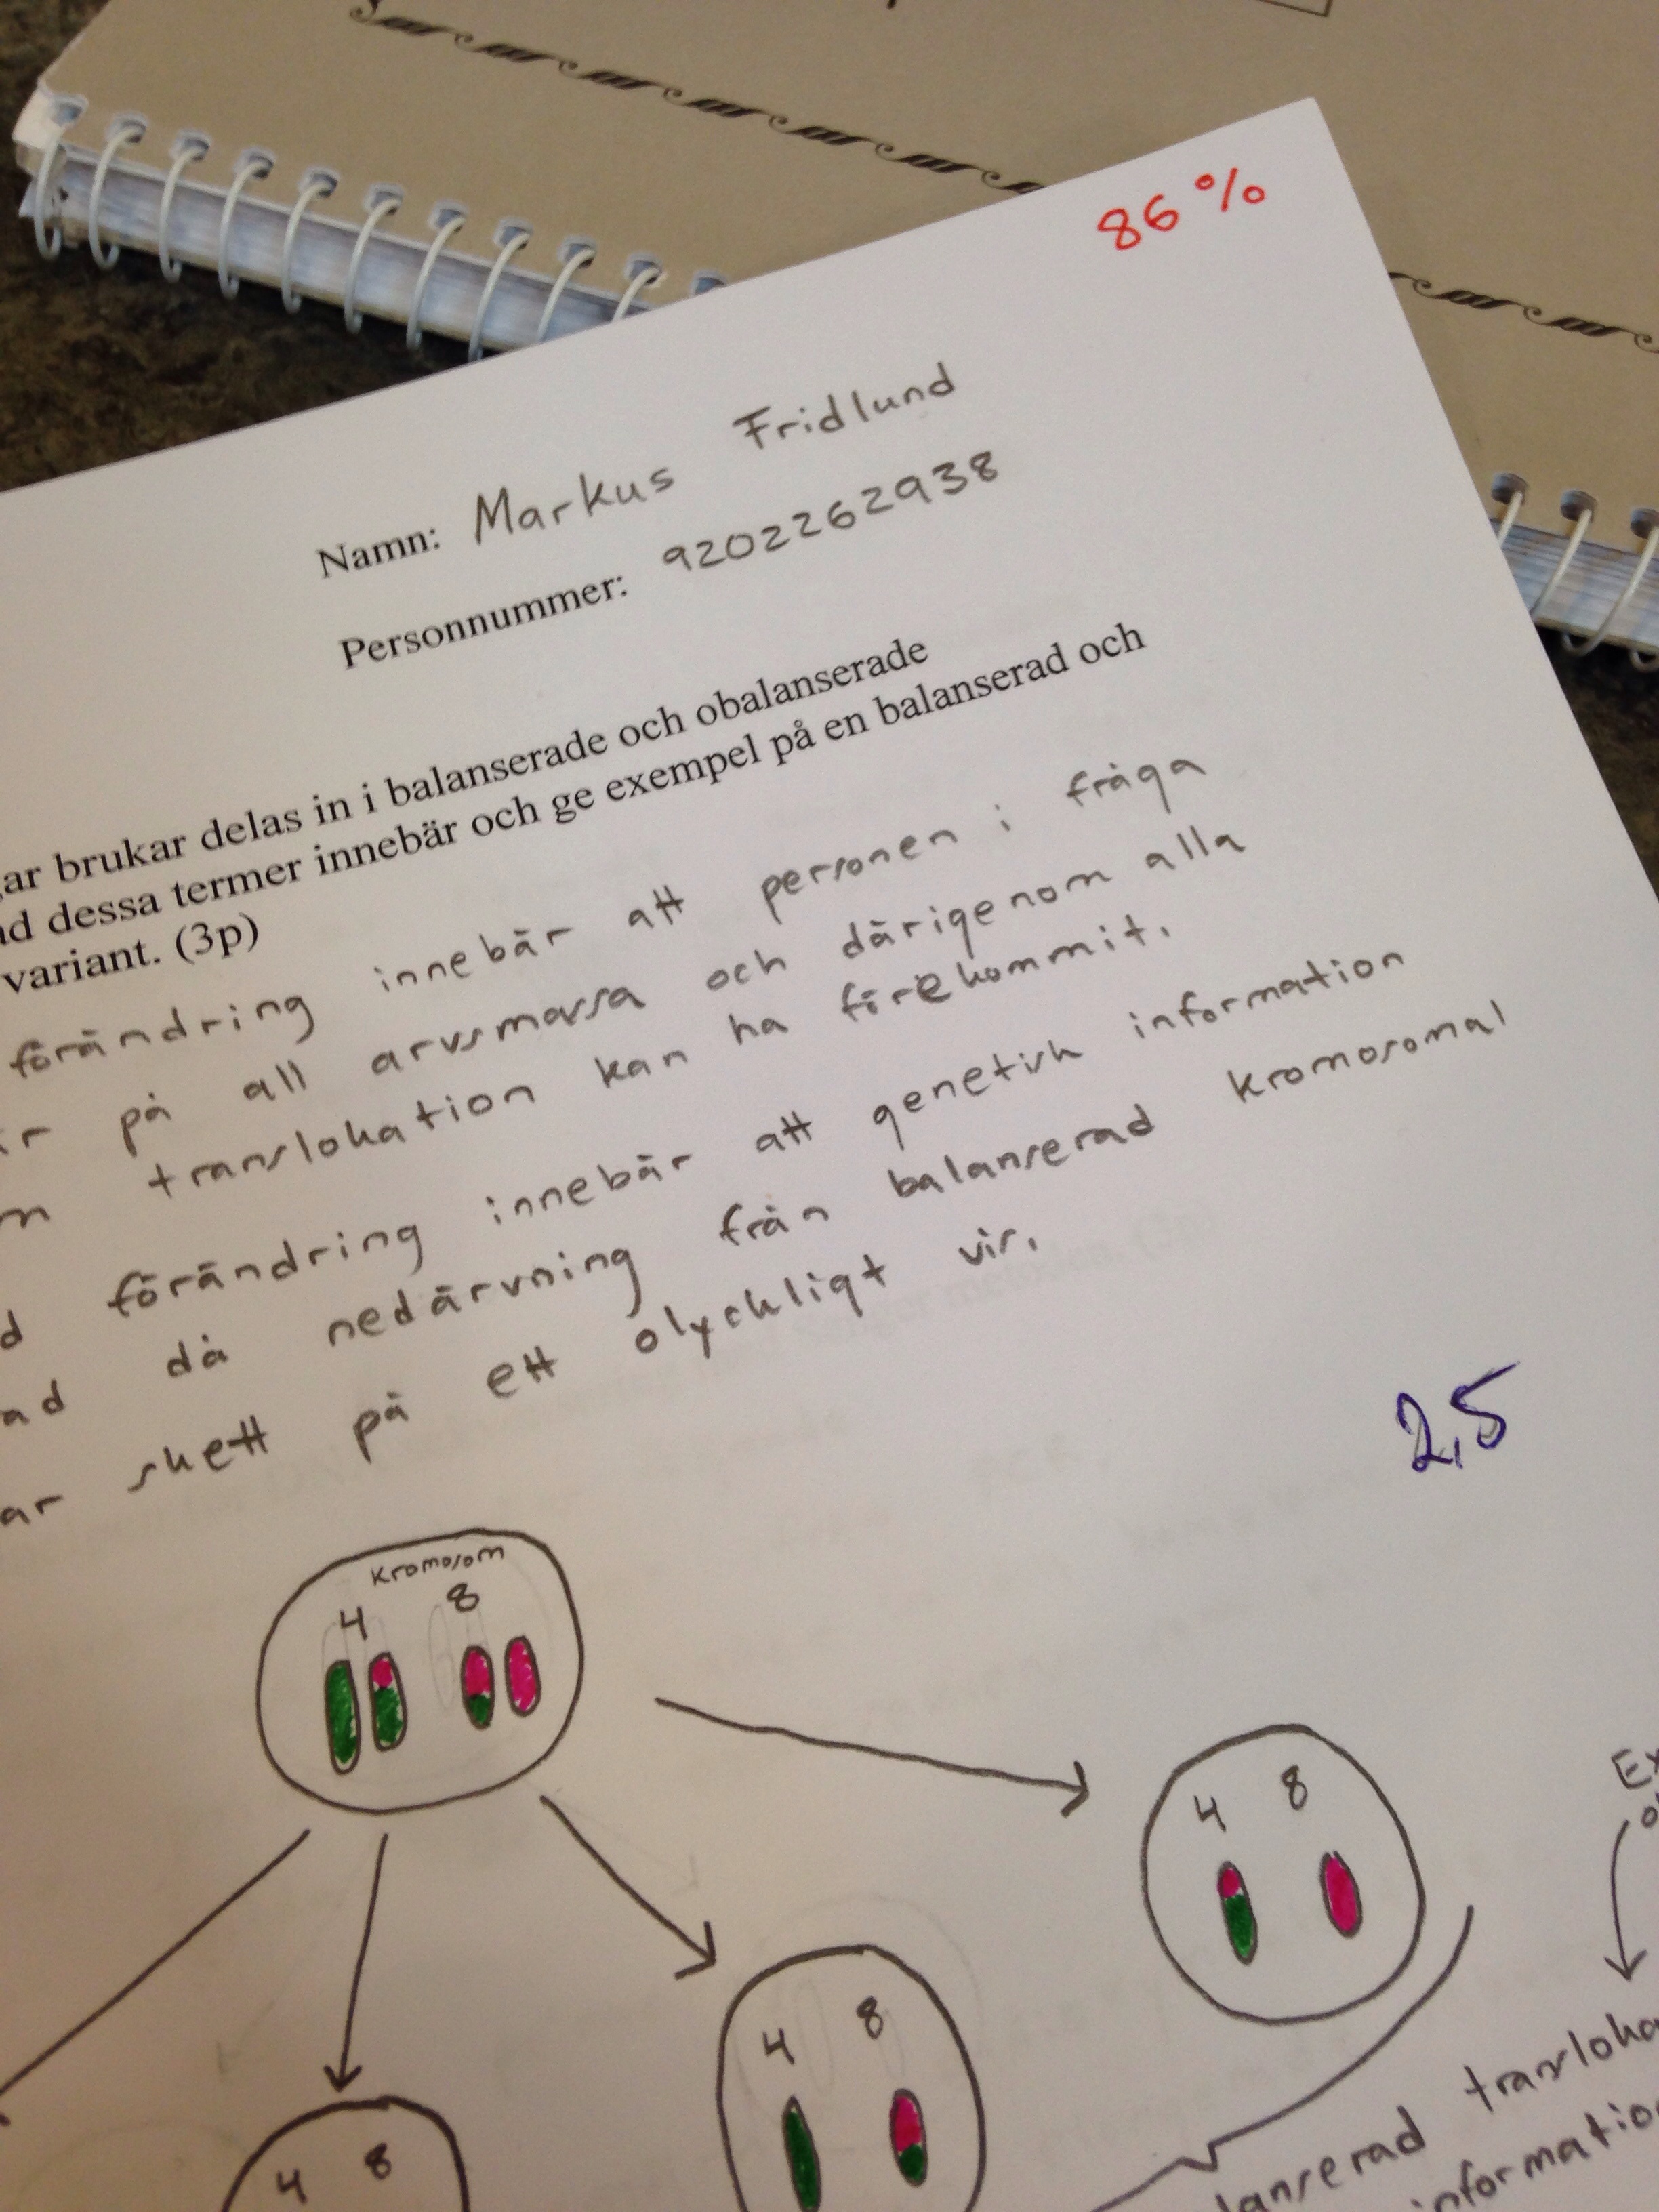 86 %
Namn: Markus Fridlund
Personnummer: 9202262938
gar brukar delas in i balanserade och obalanserade
ad dessa termer innebär och ge exempel på en balanserad och
variant. (3p)
förändring innebär att personen i fråga
är på all arvsmassa och därigenom alla
m translokation kan ha förekommit.
d förändring innebär att genetisk information
ad då nedärvning från balanserad kromosomal
ar skett på ett olyckligt vis.
2,5
Kromosom
4 8
4 8
Ex
4 8
4 8
lanserad transloka
informatio